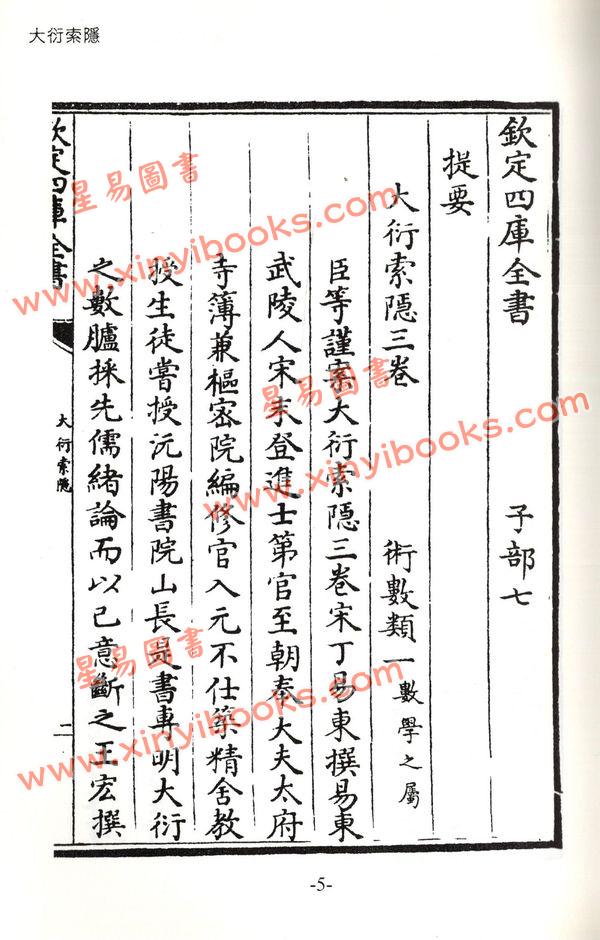 大衍索隱
欽定四庫全書
子部七
提要
大衍索隱三卷
術數類一數學之屬
臣等謹案大衍索隱三卷宋丁易東撰易東
武陵人宋末登進士第官至朝奉大夫太府
寺簿兼樞密院編修官入元不仕築精舍教
授生徒嘗授沅陽書院山長是書專明大衍
之數臚採先儒緒論而以己意斷之王宏撰
欽定四庫全書
大衍索隱
二
-5-
星易圖書
www.xinyibooks.com
星易圖書
www.xinyibooks.com
星易圖書
www.xinyibooks.com